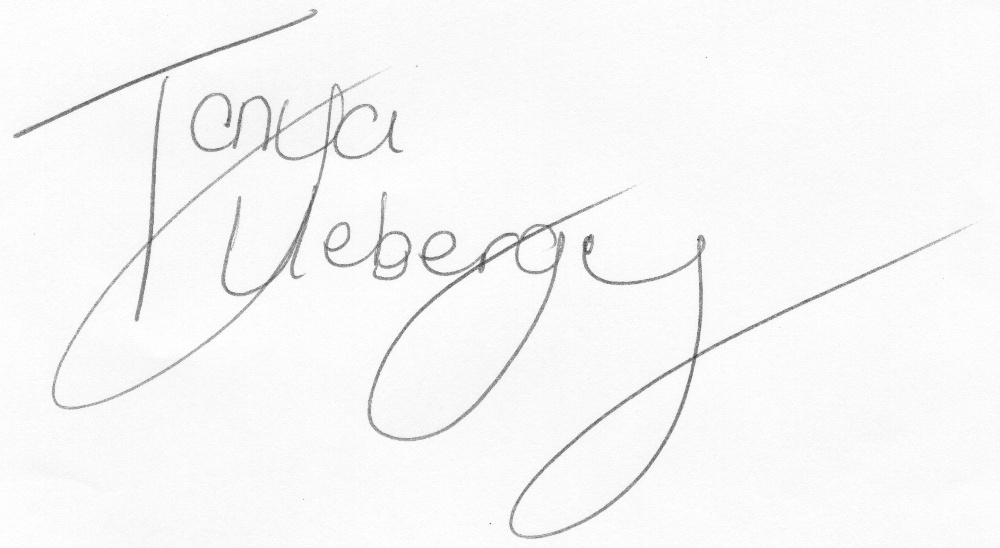 Tanya
Uebergy